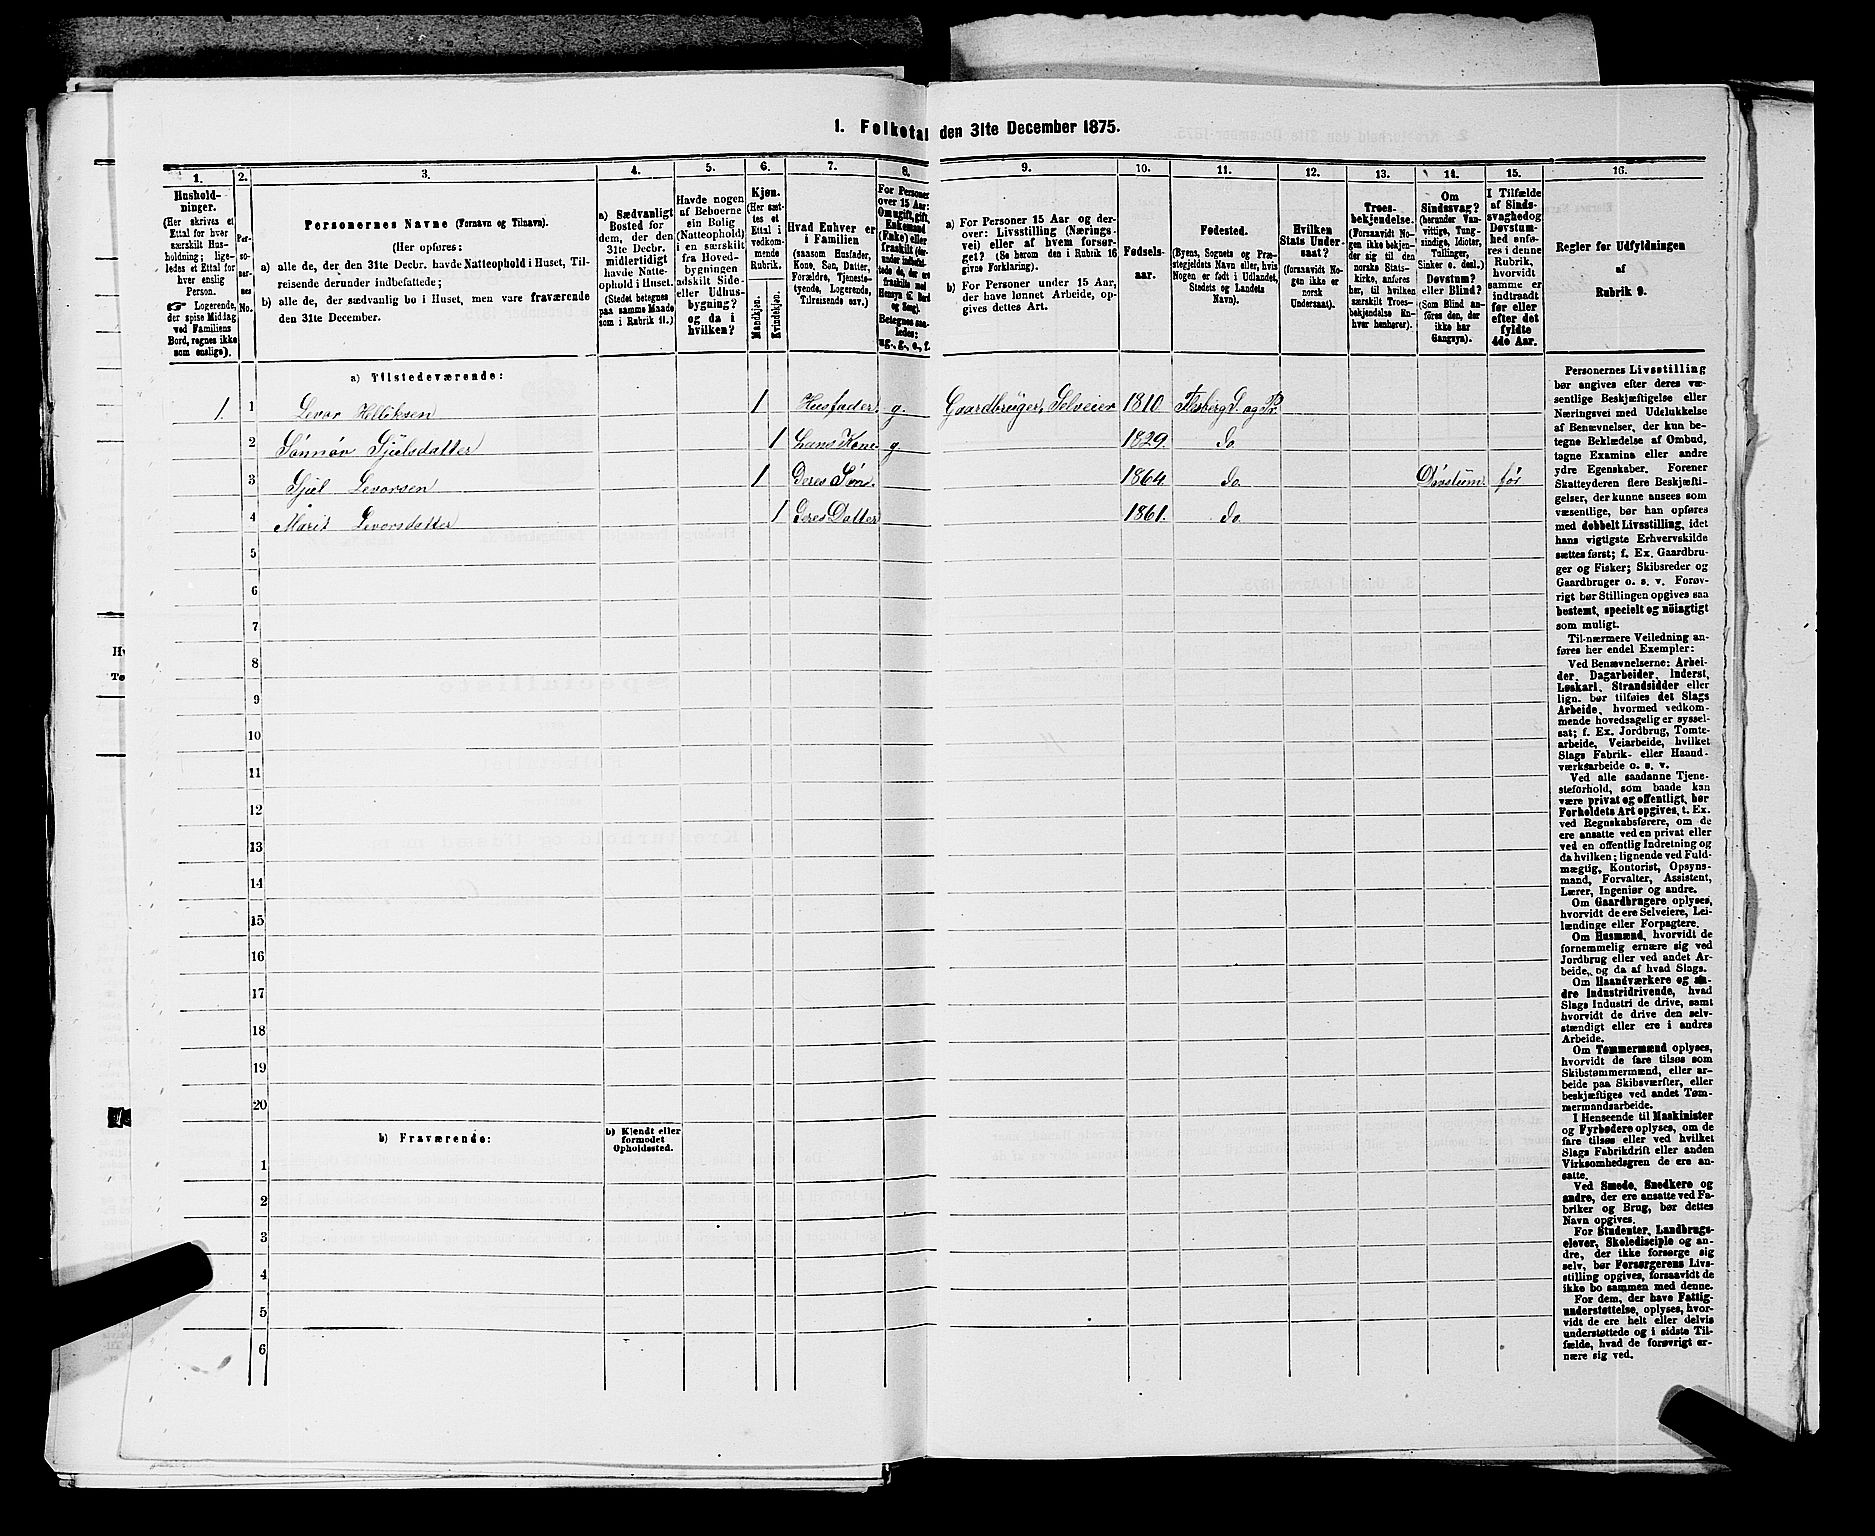 1. Folketal den 31te December 1875.
1. 2. 3. 4. 5. 6. 7. 8. 9. 10. 11. 12. 13. 14. 15. 16.
Hushold-
ninger.
(Her skrives et
Ettal for hver
særskilt Hus-
holdning; lige-
ledes et Ettal for
hver enslig
Person.
☞ Logerende,
der spise Middag
ved Familiens
Bord, regnes ikke
som enslige).
Per-
so-
ner-
nes
No.
Personernes Navne (Fornavn og Tilnavn).
(Her opføres:
a) alle de, der den 31te Decbr. havde Natteophold i Huset, Til-
reisende derunder indbefattede;
b) alle de, der sædvanlig bo i Huset, men vare fraværende
den 31te December.
a) Sædvanligt
Bosted for
dem, der den
31te Decbr.
midlertidigt
havde Natte-
ophold i Huset.
(Stedet betegnes
paa samme Maade
som i Rubrik 11.)
Havde nogen
af Beboerne
sin Bolig
(Natteophold)
i en særskilt
fra Hoved-
bygningen
adskilt Side-
eller Udhus-
bygning?
og da i
hvilken?
Kjøn.
(Her sæt-
tes et
Ettal i
vedkom-
mende
Rubrik.
Mandkjøn.
Kvindekjøn.
Hvad Enhver er
i Familien
(saasom Husfader,
Kone, Søn, Datter,
Forældre, Tjeneste-
tyende, Logerende,
Tilreisende osv.)
For Personer
over 15 Aar:
Om ugift, gift,
Enkemand
(Enke) eller
fraskilt
Betegnes saa-
ledes:
ug., g., e., f.
a) For Personer 15 Aar og der-
over: Livsstilling (Nærings-
vei) eller af hvem forsør-
get? (Se herom den i Rubrik 16
givne Forklaring).
b) For Personer under 15 Aar,
der have lønnet Arbeide, op-
gives dettes Art.
Fødsels-
aar.
Fødested.
(Byens, Sognets og Præ-
stegjeldets Navn eller, hvis
Nogen er født i Udlandet,
Stedets og Landets
Navn).
Hvilken
Stats Under-
saat?
(foraavidt No-
gen ikke er
norsk
Undersaat).
Troes-
bekjendelse.
(Forsaavidt No-
gen ikke bekjen-
der sig til den
norske Stats-
kirke, anføres
her, til hvilken
særskilt Troes-
bekjendelse En-
hver henhører).
Om
Sindssvag?
(herunder Van-
vittige, Tung-
sindige, Idioter,
Tullinger,
Sinker o. desl.)
Døvstum?
eller Blind?
(Som Blind an-
føres den, der
ikke har
Gangsyn).
I Tilfælde
af Sinds-
svaghed og
Døvstum-
hed anfø-
res i denne
Rubrik,
hvorvidt
samme er
indtraadt
før eller
efter det
fyldte
4de Aar.
Regler for Udfyldningen
af
Rubrik 9.
a) Tilstedeværende:
1. 1 Levor Helliksen 1 Husfader g. Gaardbruger, Selveier 1810 Flesberg S. og Pr.
2 Sønnøv Gjulsdatter 1 Hans Kone g. 1829. do
3 Gjul Levorsen 1 Deres Søn. 1864. do. Døvstum. før
4 Marit Levorsdatter 1 Deres Datter 1861. do.
5
6
7
8
9
10
11
12
13
14
15
16
17
18
19
20
b) Fraværende:
b) Kjendt eller
formodet
Opholdssted.
1
2
3
4
5
6
Personernes Livsstilling
bør angives efter deres væ-
sentlige Beskjæftigelse eller
Næringsvei med Udelukkelse
af Benævnelser, der kun be-
tegne Beklædelse af Ombud,
tagne Examina eller andre
ydre Egenskaber. Forener
Skatteyderen flere Beskjæfti-
gelser, der kunne ansees som
væsentlige, bør han opføres
med dobbelt Livsstilling, idet
hans vigtigste Erhvervskilde
sættes først; f. Ex. Gaardbru-
ger og Fisker; Skibsreder og
Gaardbruger o. s. v. Forøv-
rigt bør Stillingen opgives saa
bestemt, specielt og nöiagtigt
som muligt.
Til nærmere Veiledning an-
føres her endel Exempler:
Ved Benævnelserne: Arbei-
der, Dagarbeider, Inderst,
Løskarl, Strandsidder eller
lign. bør tilføies det Slags
Arbeide, hvormed vedkom-
mende hovedsagelig er syssel-
sat; f. Ex. Jordbrug, Tomte-
arbeide, Veiarbeide, hvilket
Slags Fabrik- eller Haand-
værksarbeide o. s. v.
Ved alle saadanne Tjene-
steforhold, som baade kan
være privat og offentligt, bør
Forholdets Art opgives, t. Ex.
ved Regnskabsførere, om de
ere ansatte ved en privat eller
ved en offentlig Indretning og
da hvilken; lignende ved Fuld-
mægtig, Kontorist, Opsyns-
mand, Forvalter, Assistent,
Lærer, Ingeniør og andre.
Om Gaardbrugere oplyses,
hvorvidt de ere Selveiere, Lei-
lændinge eller Forpagtere.
Om Husmænd, hvorvidt de
fornemmelig ernære sig ved
Jordbrug eller ved andet Ar-
beide, og da af hvad Slags.
Om Haandværkere og an-
dre Industridrivende, hvad
Slags Industri de drive, samt
hvorvidt de drive den selv-
stændigt eller ere i andres
Arbeide.
Om Tømmermænd oplyses,
hvorvidt de fare tilsøs som
Skibstømmermænd, eller ar-
beide paa Skibsværfter, eller
beskjæftiges ved andet Tøm-
mermandsarbeide.
I Henseende til Maskinister
og Fyrbødere oplyses, om de
fare tilsøs eller ved hvilket
Slags Fabrikdrift eller anden
Virksomhedsgren de ere an-
satte.
Ved Smede, Snedkere og
andre, der ere ansatte ved Fa-
briker og Brug, bør dettes
Navn opgives.
For Studenter, Landbrugs-
elever, Skoledisciple og an-
dre, der ikke forsørge sig
selv, bør Forsørgerens Livs-
stilling opgives, forsaavidt de
ikke bo sammen med denne.
For dem, der have Fattig-
understøttelse, oplyses, hvor-
vidt de ere helt eller delvis
understøttede og i sidste Til-
fælde, hvad de forøvrigt er-
nære sig ved.